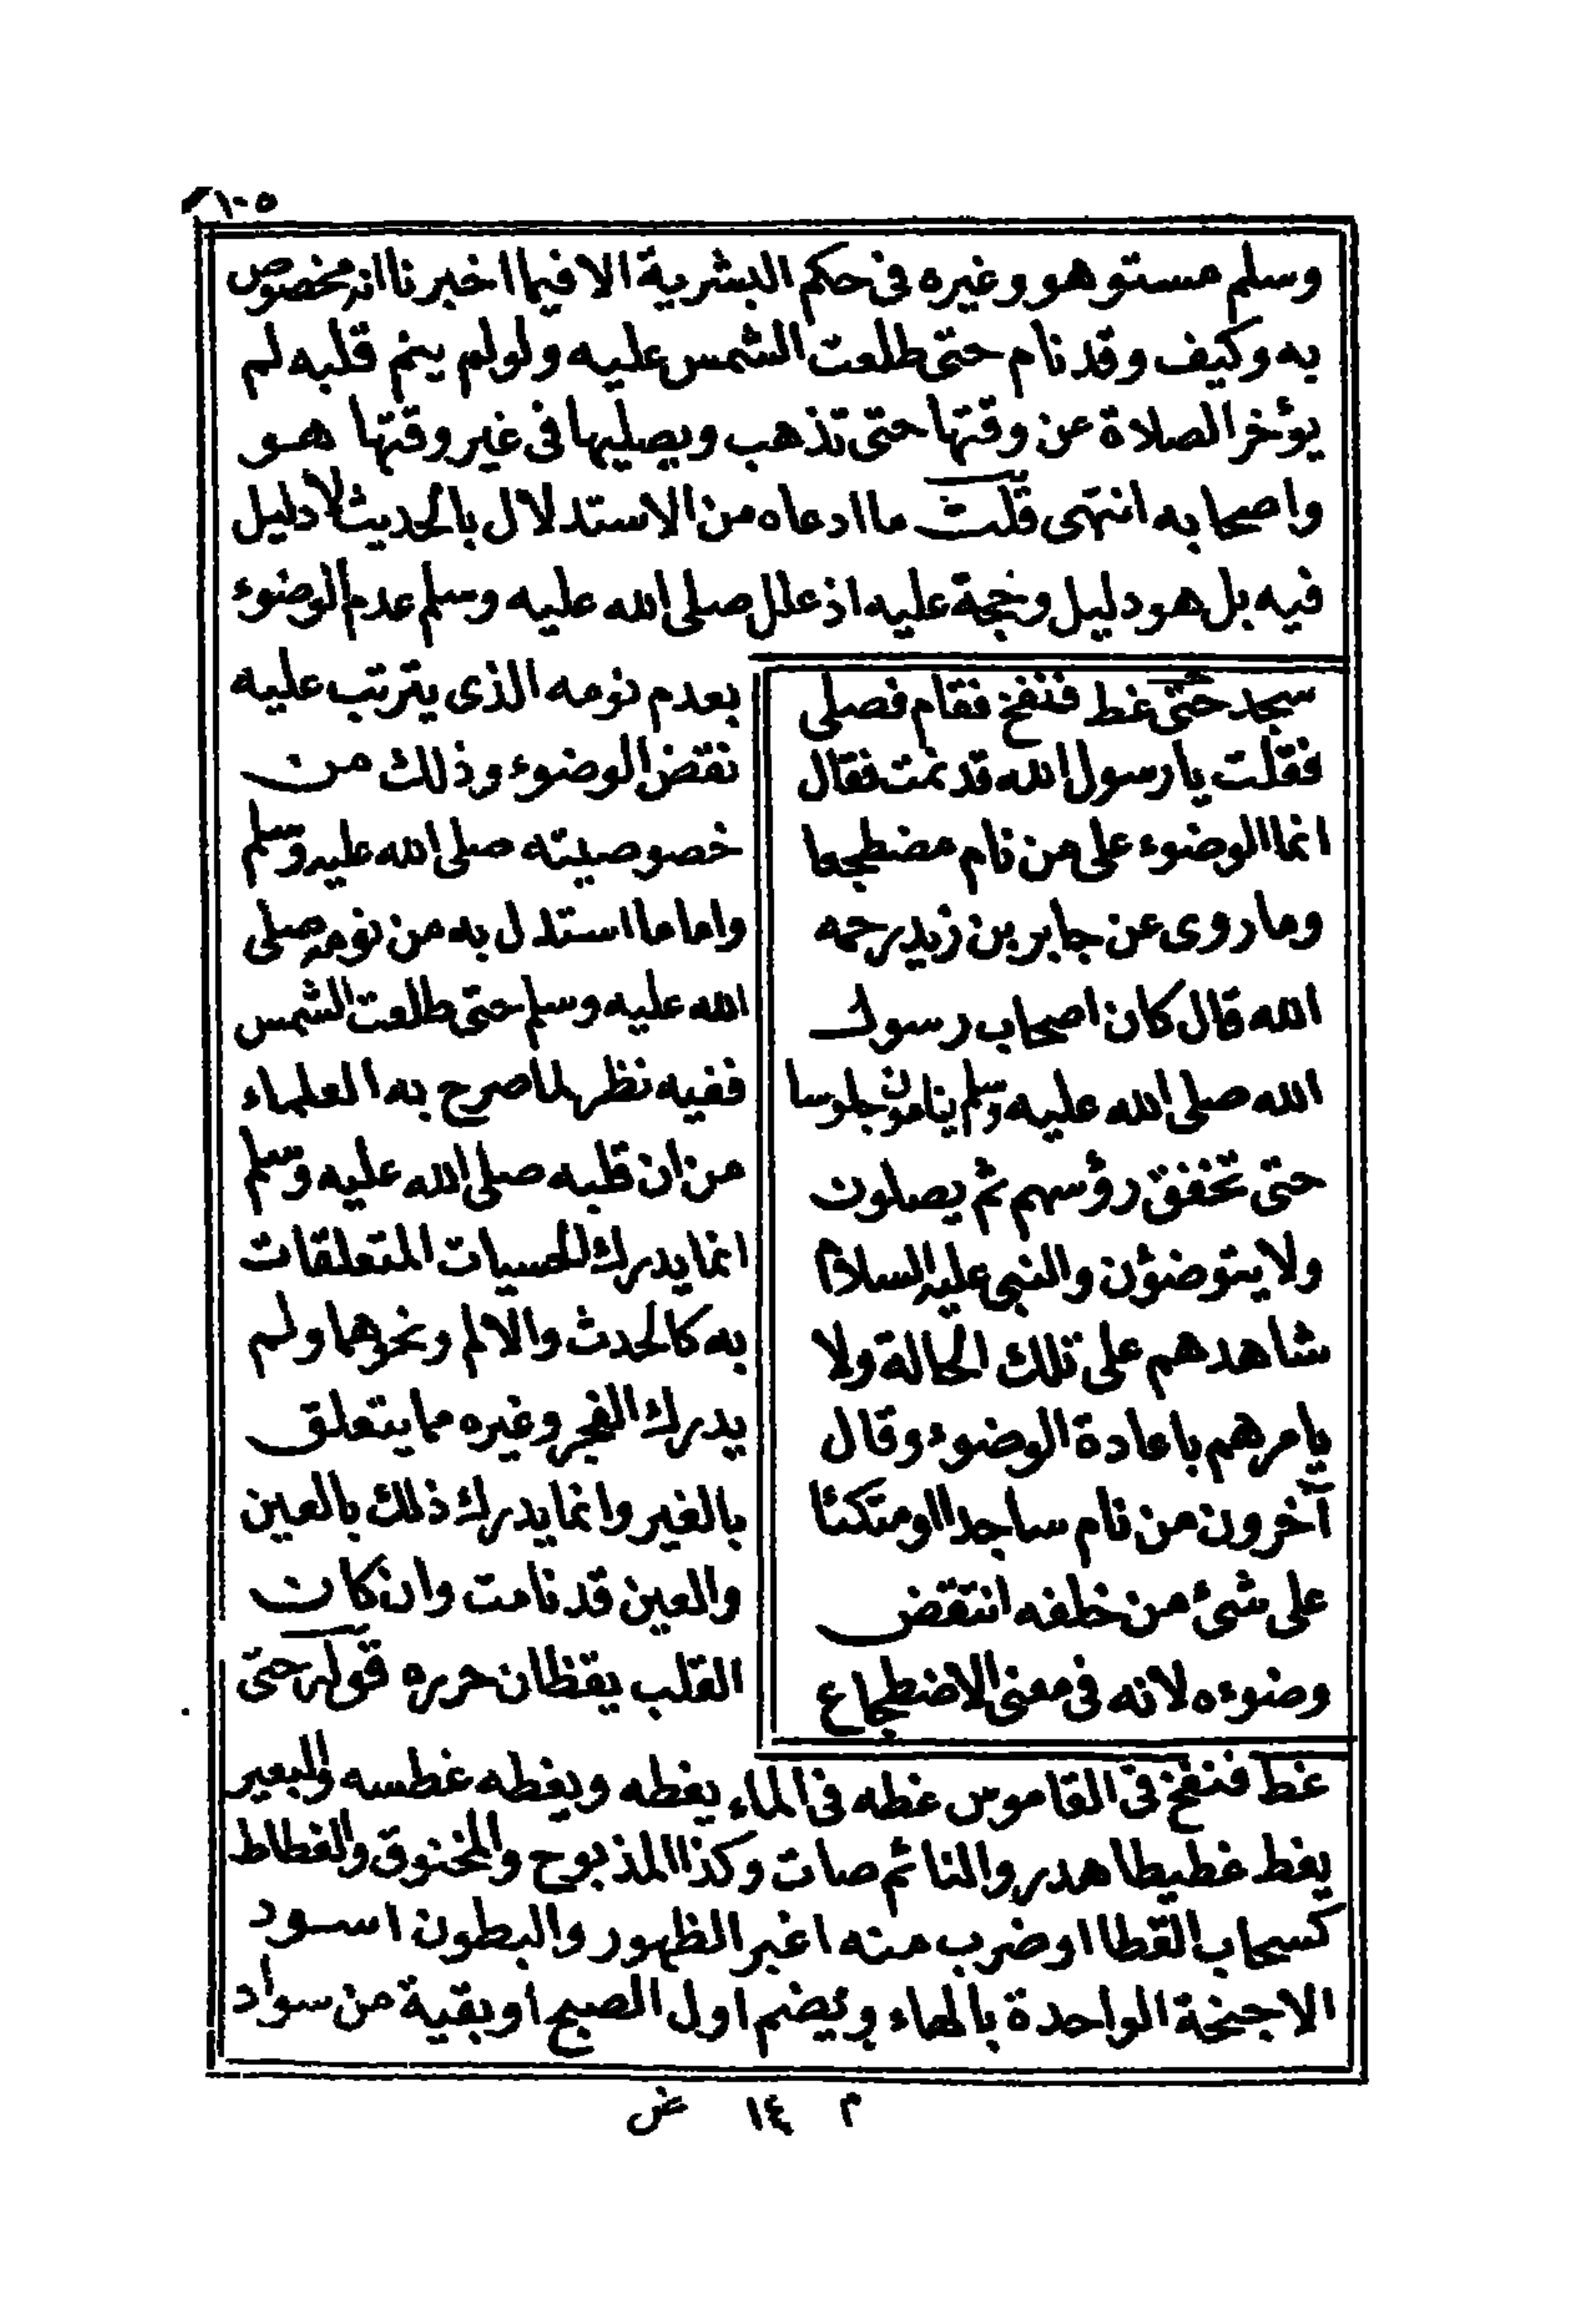 ١٠٥
وسلم مستو هو وغيره فى حكم البشرية الا فيما اخبرنا انه مخصوص
به وكيف وقد نام حتى طلعت الشمس عليه ولو لم ينم قلبه لم
يؤخر الصلاة عن وقتها حتى تذهب ويصليها فى غير وقتها هو
واصحابه انتهى قلت ما ادعاه من الاستدلال بالحديث لا دليل
فيه بل هو دليل وحجة عليه اذ علل صلى الله عليه وسلم عدم الوضوء
بعدم نومه الذى يترتب عليه
نقض الوضوء وذلك من
خصوصيته صلى الله عليه وسلم
واما ما استدل به من نومه صلى
الله عليه وسلم حتى طلعت الشمس
ففيه نظر لما صرح به العلماء
من ان قلبه صلى الله عليه وسلم
انما يدرك الحسيات المتعلقات
به كالحدث والالم ونحوهما ولم
يدرك الفجر وغيره مما يتعلق
بالغير وانما يدرك ذلك بالعين
والعين قد نامت وان كان
القلب يقظان حرره قوله حتى
سجد حتى غط فنفخ فقام فصلى
فقلت يا رسول الله قد نمت فقال
انما الوضوء على من نام مضطجعا
وما روى عن جابر بن زيد رحمه
الله قال كان اصحاب رسول
الله صلى الله عليه وسلم ينامون جلوسا
حتى تخفق رؤسهم ثم يصلون
ولا يتوضؤن والنبى عليه السلام
شاهدهم على تلك الحالة ولا
يامرهم باعادة الوضوء وقال
آخرون من نام ساجدا او متكئا
على شئ من خلفه انتقض
وضوءه لانه فى معنى الاضطجاع
غط فنفخ فى القاموس غطه فى الماء يغطه ويغطه غطسه والبعير
يغط غطيطا هدر والنائم صات وكذا المذبوح والمخنوق والغطاط
كسحاب القطا او ضرب منه اغبر الظهور والبطون اسود
الاجنحة الواحدة بالهاء ويضم اول الصبح او بقية من سواد
م ١٤ غن